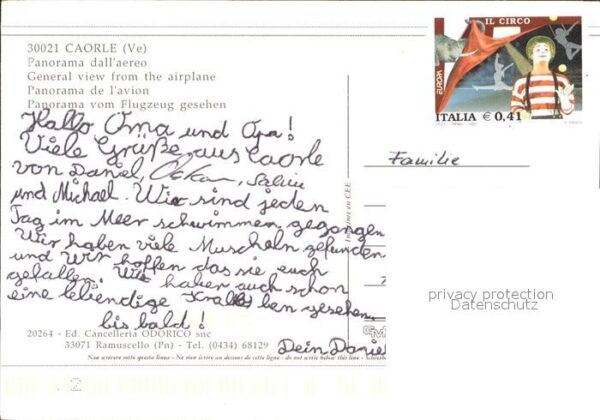 30021 CAORLE (Ve)
Panorama dall'aereo
General view from the airplane
Panorama de l'avion
Panorama vom Flugzeug gesehen
Hallo Oma und Opa!
Viele Grüße aus Caorle
von Daniel,
und Michael. Wir sind jeden
Tag im Meer schwimmen gegangen
Wir haben viele Muscheln gefunden
und Wir hoffen das sie euch
gefallen. Wir haben auch schon
eine lebendige Krabben gesehen.
bis bald!
Dein Daniel
20264 - Ed. Cancelleria ODORICO snc
33071 Ramuscello (Pn) - Tel. (0434) 68129
Non scrivere sotto questa linea - Ne rien écrire au dessous de cette ligne - do not write below this line -
Made in CEE
IL CIRCO
EUROPA
ITALIA € 0,41
Familie
privacy protection
Datenschutz